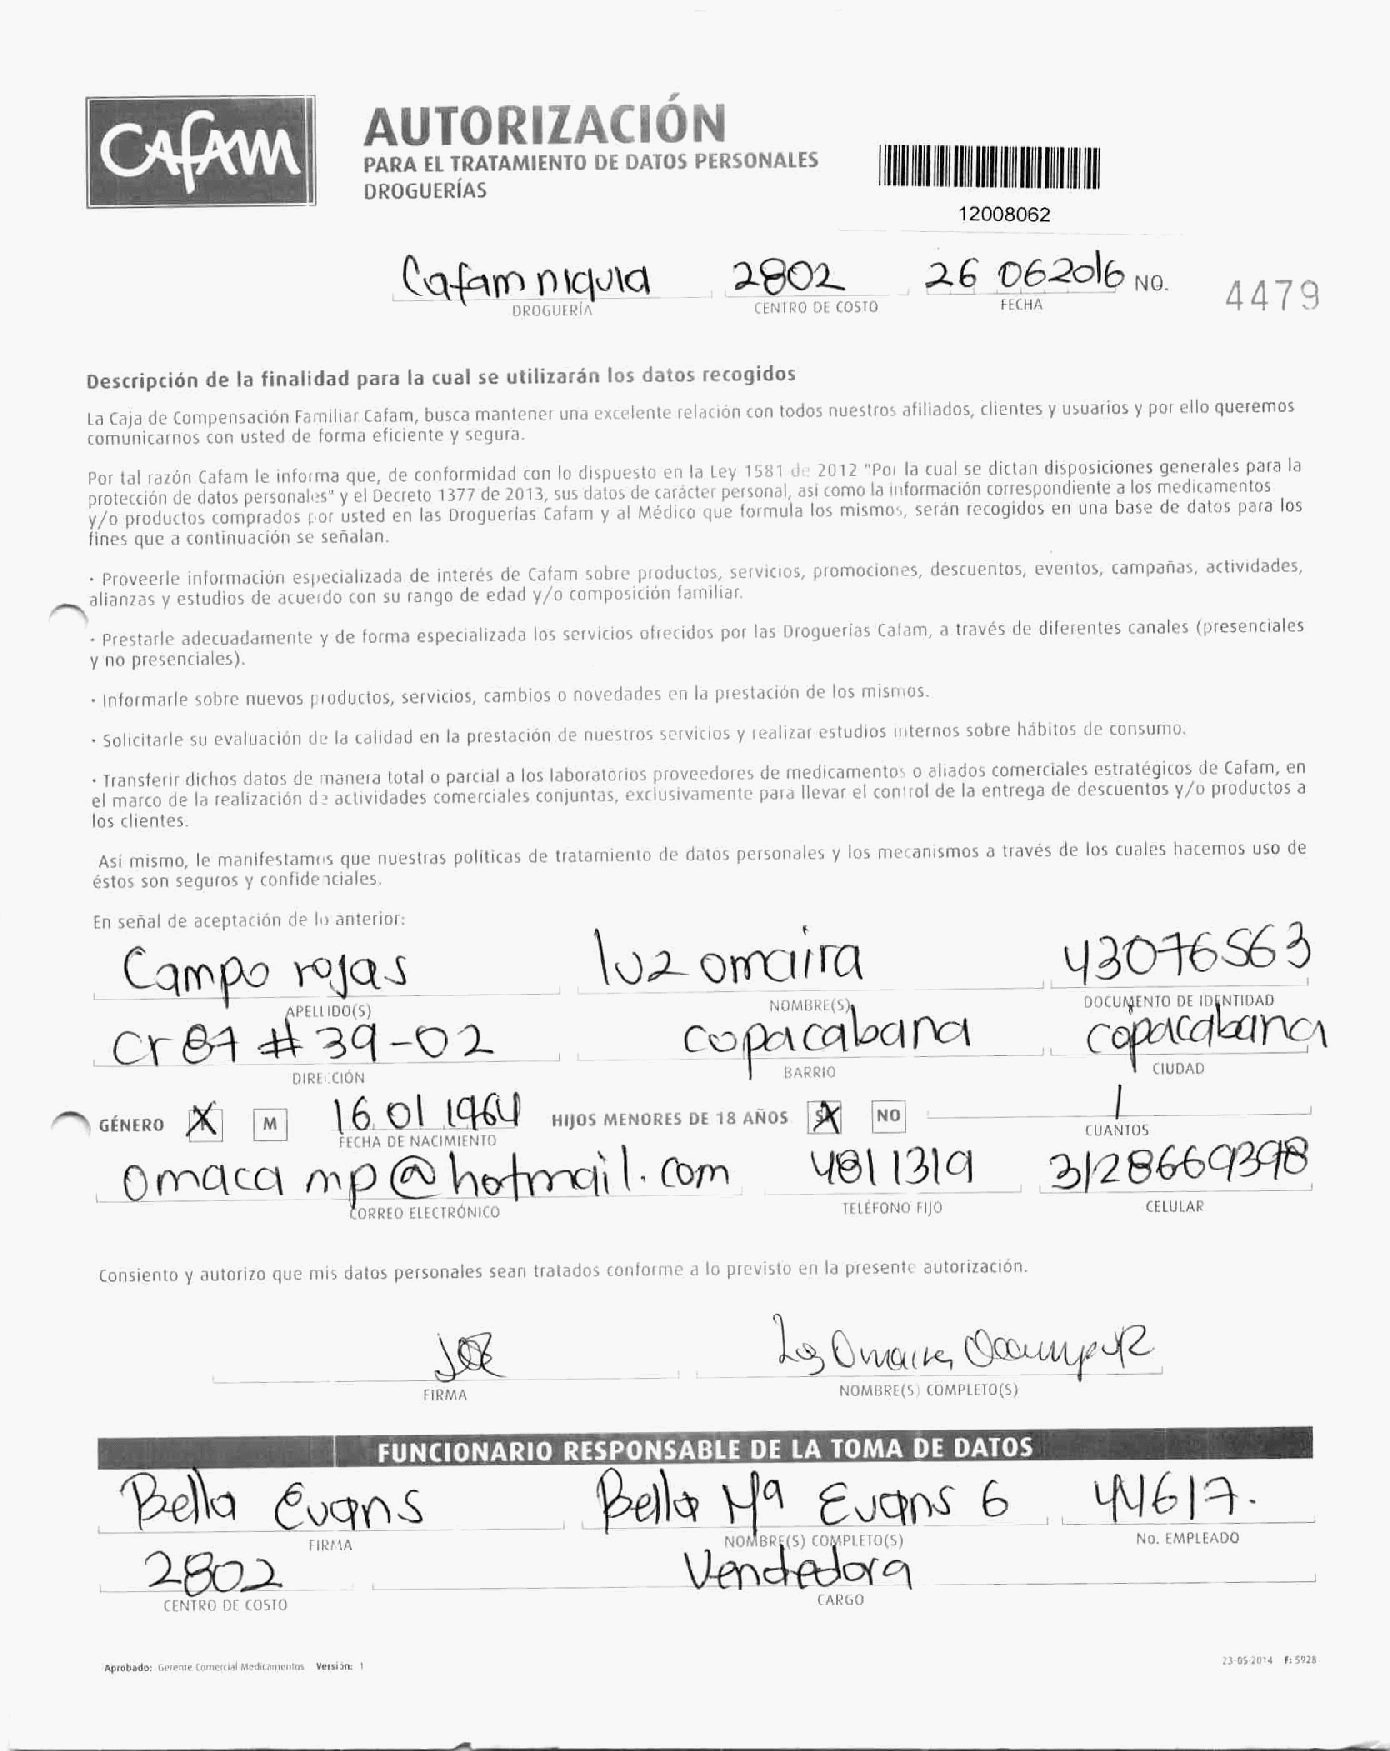 CAFAM
AUTORIZACIÓN
PARA EL TRATAMIENTO DE DATOS PERSONALES
DROGUERÍAS
12008062
Cafam niquia 2802 26 062016 NO. 4479
DROGUERÍA CENTRO DE COSTO FECHA
Descripción de la finalidad para la cual se utilizarán los datos recogidos
La Caja de Compensación Familiar Cafam, busca mantener una excelente relación con todos nuestros afiliados, clientes y usuarios y por ello queremos
comunicarnos con usted de forma eficiente y segura.
Por tal razón Cafam le informa que, de conformidad con lo dispuesto en la Ley 1581 de 2012 "Por la cual se dictan disposiciones generales para la
protección de datos personales" y el Decreto 1377 de 2013, sus datos de carácter personal, así como la información correspondiente a los medicamentos
y/o productos comprados por usted en las Droguerías Cafam y al Médico que formula los mismos, serán recogidos en una base de datos para los
fines que a continuación se señalan.
· Proveerle información especializada de interés de Cafam sobre productos, servicios, promociones, descuentos, eventos, campañas, actividades,
alianzas y estudios de acuerdo con su rango de edad y/o composición familiar.
· Prestarle adecuadamente y de forma especializada los servicios ofrecidos por las Droguerías Cafam, a través de diferentes canales (presenciales
y no presenciales).
· Informarle sobre nuevos productos, servicios, cambios o novedades en la prestación de los mismos.
· Solicitarle su evaluación de la calidad en la prestación de nuestros servicios y realizar estudios internos sobre hábitos de consumo.
· Transferir dichos datos de manera total o parcial a los laboratorios proveedores de medicamentos o aliados comerciales estratégicos de Cafam, en
el marco de la realización de actividades comerciales conjuntas, exclusivamente para llevar el control de la entrega de descuentos y/o productos a
los clientes.
Así mismo, le manifestamos que nuestras políticas de tratamiento de datos personales y los mecanismos a través de los cuales hacemos uso de
éstos son seguros y confidenciales.
En señal de aceptación de lo anterior:
Campo rojas luz omaira 43076563
APELLIDO(S) NOMBRE(S) DOCUMENTO DE IDENTIDAD
Cr 87 # 39-02 copacabana copacabana
DIRECCIÓN BARRIO CIUDAD
GÉNERO X M 16 01 1964 HIJOS MENORES DE 18 AÑOS X NO 1
FECHA DE NACIMIENTO CUANTOS
omaca mp@hotmail.com 4811319 3128669398
CORREO ELECTRÓNICO TELÉFONO FIJO CELULAR
Consiento y autorizo que mis datos personales sean tratados conforme a lo previsto en la presente autorización.
Luz Omaira
FIRMA NOMBRE(S) COMPLETO(S)
FUNCIONARIO RESPONSABLE DE LA TOMA DE DATOS
Bella Evans Bella Mª Evans G 44617.
FIRMA NOMBRE(S) COMPLETO(S) No. EMPLEADO
2802 Vendedora
CENTRO DE COSTO CARGO
Aprobado: Gerente Comercial Medicamentos Versión: 1 23-05-2014 F: 5928